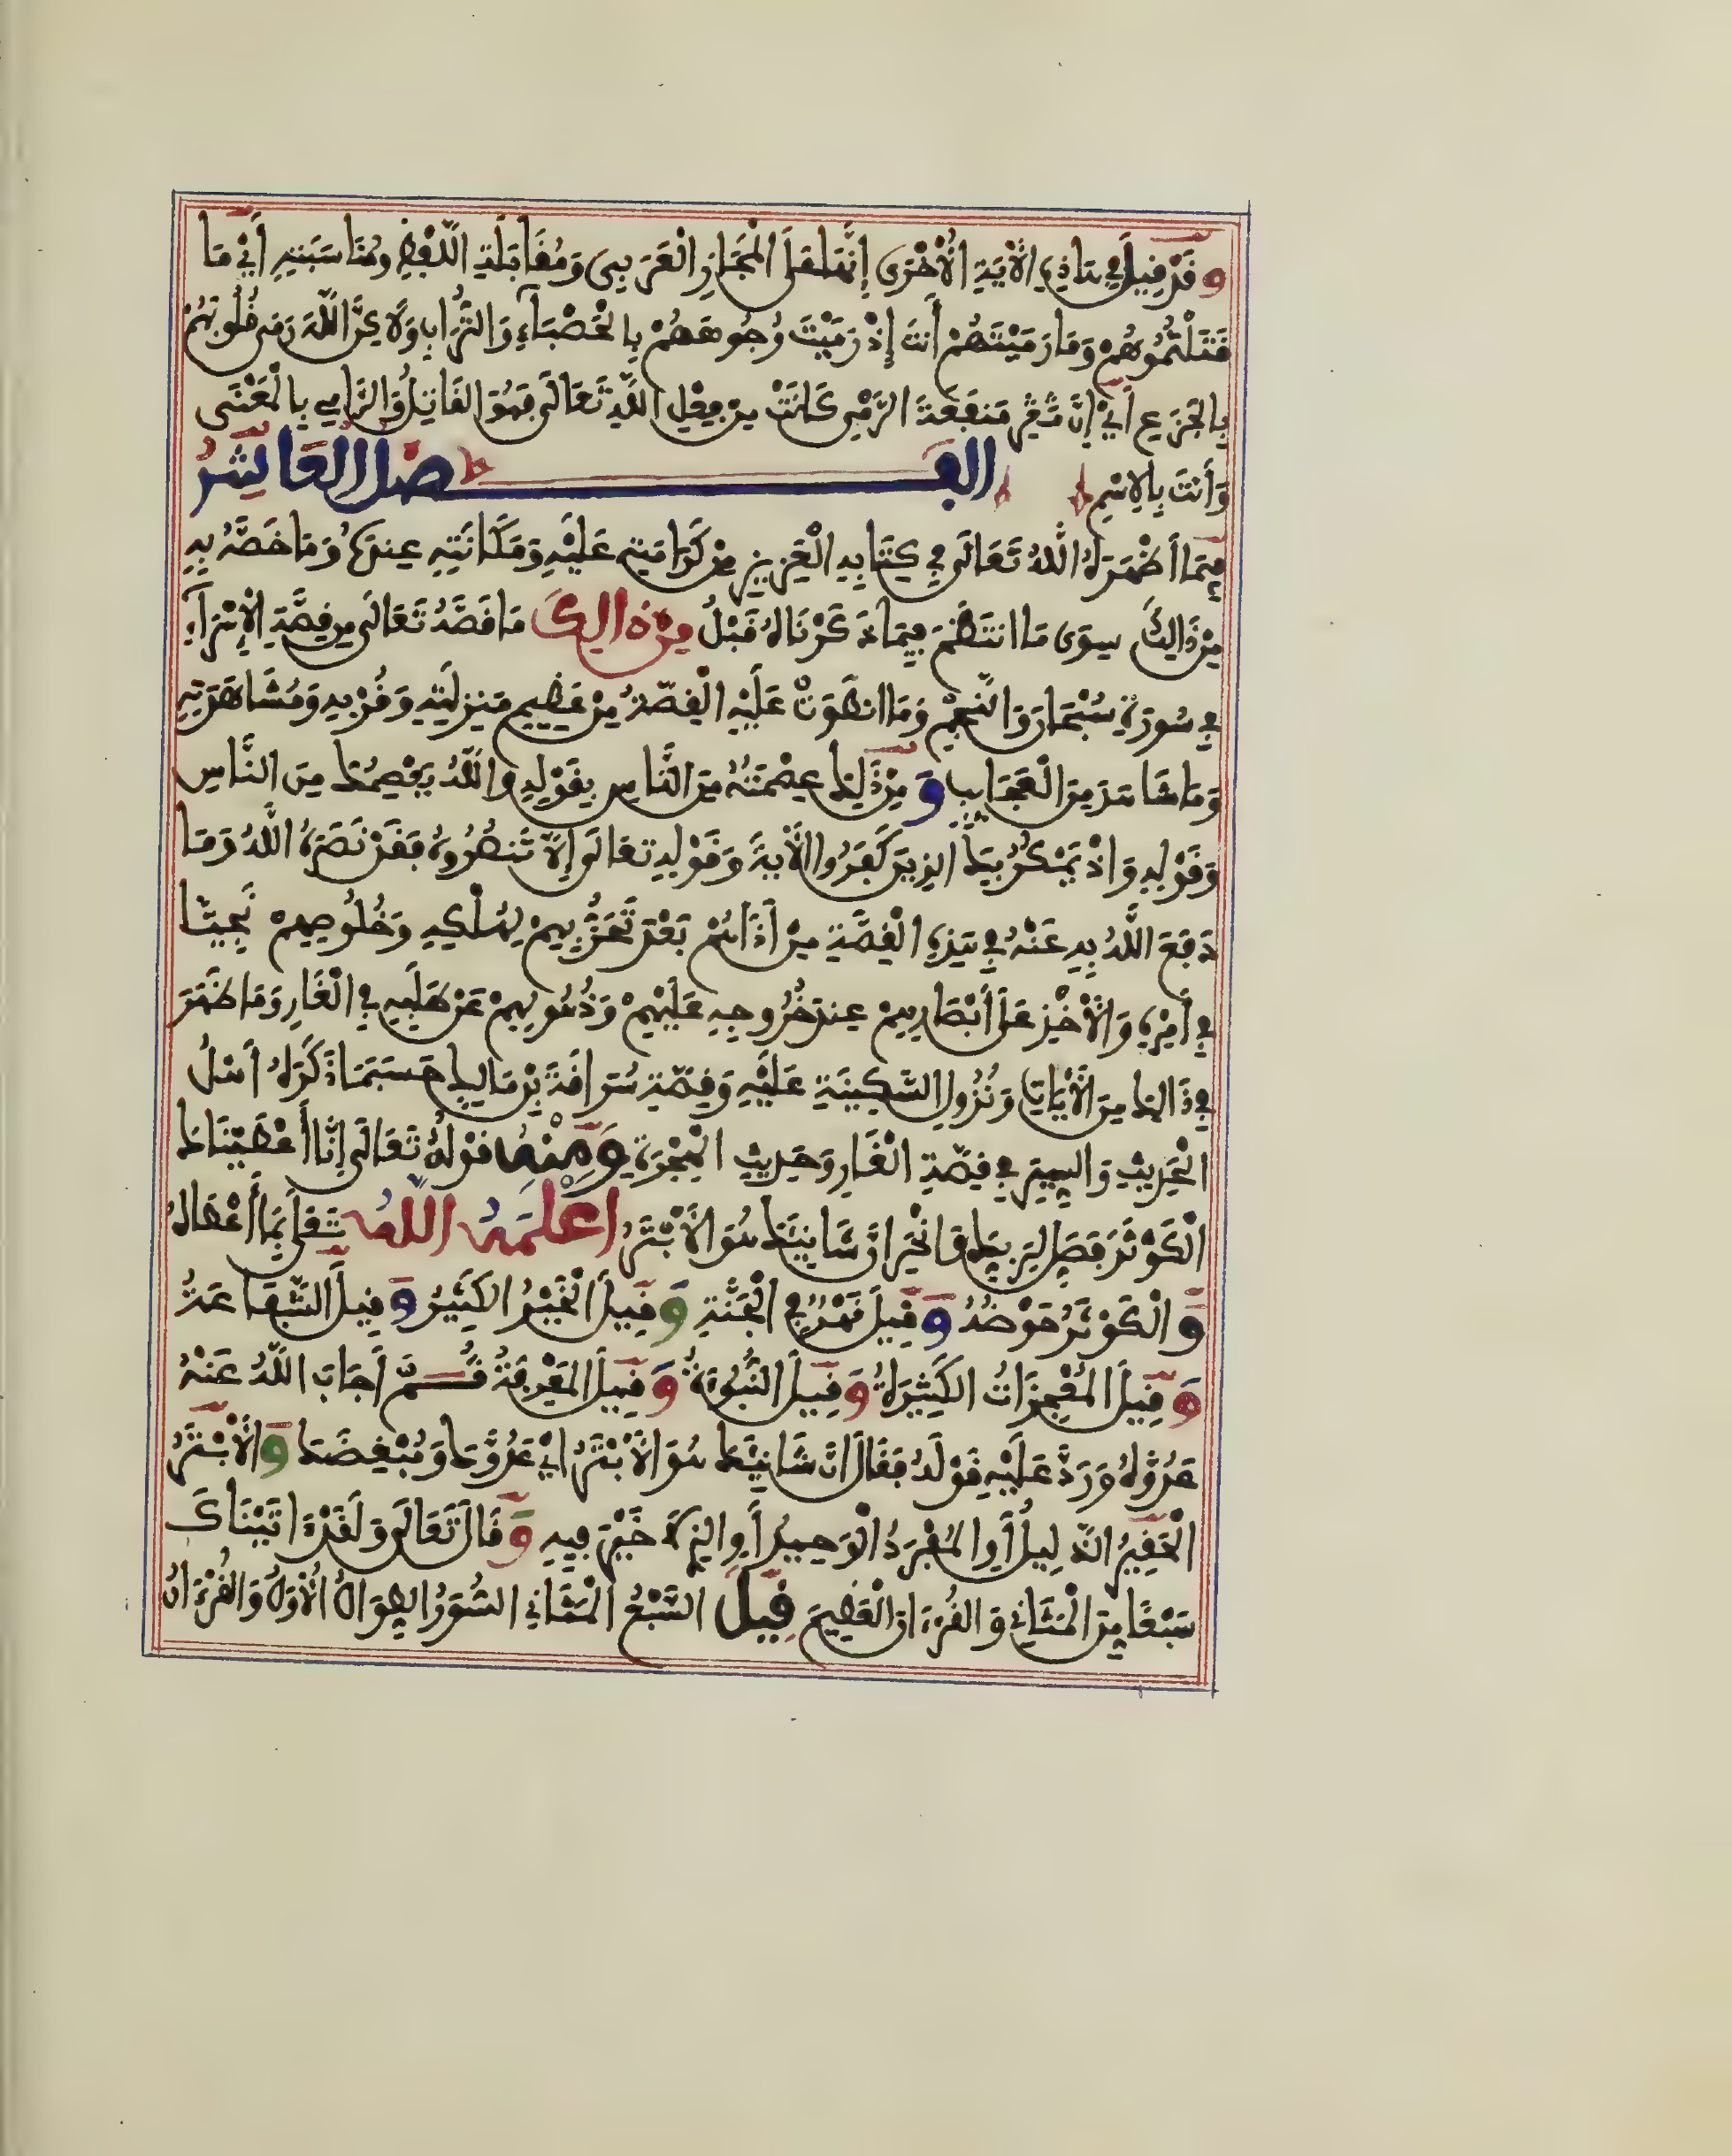 وَقَدْ قِيلَ فِي هَاذِهِ الْأَيَةِ الْأُخْرَى إِنَّهَا عَلَى الْمَجَازِ الْعَرَبِيِّ وَمُقَابَلَةِ اللَّفْظِ وَمُنَاسَبَتِهِ أَيْ مَا
قَتَلْتُمُوهُمْ وَمَا رَمَيْتَهُمْ أَنتَ إِذْ رَمَيْتَ وُجُوهَهُمْ بِالْحَصْبَاءِ وَالتُّرَابِ وَلَاكِنَّ اللَّهَ رَمَى قُلُوبَهُمْ
بِالْجَزَعِ أَيْ إِنَّ مَنفَعَةَ الرَّمْيِ كَانَتْ مِنْ فِعْلِ اللَّهِ تَعَالَى فَهُوَ الْقَاتِلُ وَالرَّامِي بِالْمَعْنَى
وَأَنتَ بِالِاسْمِ الْفَصْلُ الْعَاشِرُ
فِيمَا أَظْهَرَهُ اللَّهُ تَعَالَى فِي كِتَابِهِ الْعَزِيزِ مِنْ كَرَامَتِهِ عَلَيْهِ وَمَكَانَتِهِ عِندَهُ وَمَا خَصَّهُ بِهِ
مِنْ ذَالِكَ سِوَى مَا انتَظَمَ فِيمَا ذَكَرْنَاهُ قَبْلُ مِنْ ذَالِكَ مَا قَصَّهُ تَعَالَى مِن قِصَّةِ الْإِسْرَآءِ
فِي سُورَةِ سُبْحَانَ وَالنَّجْمِ وَمَا انطَوَتْ عَلَيْهِ الْقِصَّةُ مِنْ عَظِيمِ مَنزِلَتِهِ وَقُرْبِهِ وَمُشَاهَدَتِهِ
وَمَا شَاهَدَ مِنَ الْعَجَايِبِ وَمِنْ ذَلِكَ عِصْمَتُهُ مِنَ النَّاسِ بِقَوْلِهِ وَاللَّهُ يَعْصِمُكَ مِنَ النَّاسِ
وَقَوْلِهِ وَإِذْ يَمْكُرُ بِكَ الذِينَ كَفَرُوا الْأَيَةَ وَقَوْلِهِ تَعَالَى إِلَّا تَنصُرُوهُ فَقَدْ نَصَرَهُ اللَّهُ وَمَا
دَفَعَ اللَّهُ بِهِ عَنْهُ فِي هَذِهِ الْقِصَّةِ مِنْ أَذَاهُمْ بَعْدَ تَحَزُّبِهِمْ لِهُلْكِهِ وَخُلُوصِهِمْ نَجِيّاً
فِي أَمْرِهِ وَالْأَخْذِ عَلَى أَبْصَارِهِمْ عِندَ خُرُوجِهِ عَلَيْهِمْ وَذُهُولِهِمْ عَنْ طَلَبِهِ فِي الْغَارِ وَمَا ظَهَرَ
فِي ذَالِكَ مِنَ الْأَيَاتِ وَنُزُولِ السَّكِينَةِ عَلَيْهِ وَقِصَّةِ سُرَاقَةَ بْنِ مَالِكٍ حَسَبَمَا ذَكَرَهُ أَهْلُ
الْحَدِيثِ وَالسِّيَرِ فِي قِصَّةِ الْغَارِ وَحَدِيثِ الْهِجْرَةِ وَمِنْهُ قَوْلُهُ تَعَالَى إِنَّا أَعْطَيْنَاكَ
الْكَوْثَرَ فَصَلِّ لِرَبِّكَ وَانْحَرْ إِنَّ شَانِئَكَ هُوَ الْأَبْتَرُ أَعْلَمَهُ اللَّهُ تَعَالَى بِمَا أَعْطَاهُ
وَالْكَوْثَرُ حَوْضُهُ وَقِيلَ نَهْرٌ فِي الْجَنَّةِ وَقِيلَ الْخَيْرُ الْكَثِيرُ وَقِيلَ الشَّفَاعَةُ
وَقِيلَ الْمُعْجِزَاتُ الْكَثِيرَةُ وَقِيلَ النُّبُوَّةُ وَقِيلَ الْمَعْرِفَةُ ثُمَّ أَجَابَ اللَّهُ عَنْهُ
عَدُوَّهُ وَرَدَّ عَلَيْهِ قَوْلَهُ فَقَالَ إِنَّ شَانِئَكَ هُوَ الْأَبْتَرُ أَيْ عَدُوَّكَ وَمُبْغِضَكَ وَالْأَبْتَرُ
الْحَقِيرُ الذَّلِيلُ أَوِ الْمُفْرَدُ الْوَحِيدُ أَوِ الذِي لَا خَيْرَ فِيهِ وَقَالَ تَعَالَى وَلَقَدْ ءَاتَيْنَاكَ
سَبْعاً مِنَ الْمَثَانِي وَالْقُرْءَانَ الْعَظِيمَ قِيلَ السَّبْعُ الْمَثَانِي السُّوَرُ الطِّوَالُ الْأُوَلُ وَالْقُرْءَانُ